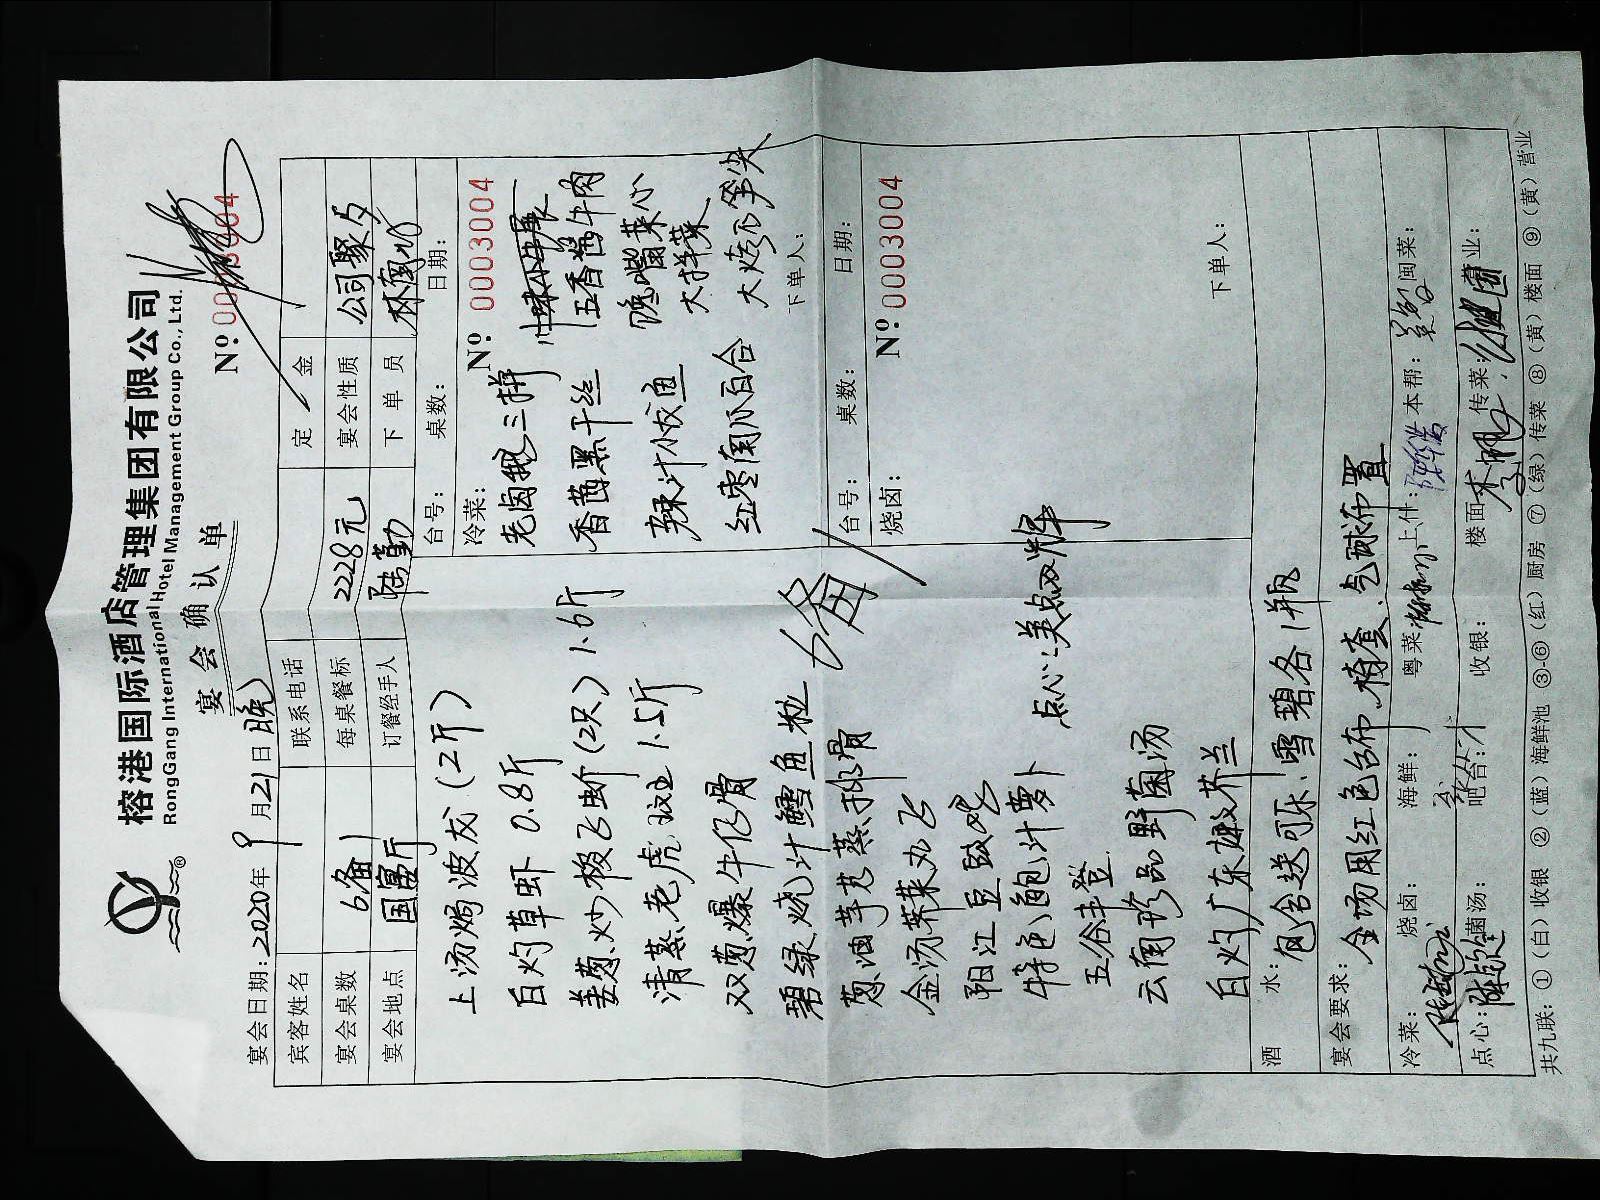 榕港国际酒店管理集团有限公司
RongGang International Hotel Management Group Co., Ltd.
®
宴会确认单
宴会日期: 2020年 9月21日 晚
Nº 0003004
宾客姓名
联系电话
定金
宴会桌数 6备1
每桌餐标 2228元
宴会性质 公司聚歺
宴会地点 国富厅
订餐经手人 陆勤
下单员
上汤焗波龙(2斤)
白灼草虾 0.8斤
姜葱炒极飞蚧(2只) 1.6斤
清蒸老虎斑 1.5斤
双葱爆牛仔骨
碧绿烧汁鳕鱼粒
葱油芋艿蒸排骨
金汤荠菜丸飞
阳江豆豉
特色鲍汁萝卜
五谷丰登
云南珍品野菌汤
白灼广东芥兰
点心:美点双辉
台号: 桌数: 日期:
冷菜: Nº 0003004
老卤三拼
香茜黑干丝
五香酱牛肉
辣汁小鱼
馋嘴菜心
大拌菜
红枣南瓜百合
大烤笋尖
下单人:
台号: 桌数: 日期:
烧卤: Nº 0003004
下单人:
酒水: 包含送可乐、雪碧各1瓶
宴会要求: 全场用红色台布、椅套、气球布置
冷菜: 烧卤: 海鲜: 粤菜: 上什: 本帮: 闽菜:
点心: 菌汤: 吧台: 收银: 楼面: 传菜: 营业:
共九联: ①(白)收银 ②(蓝)海鲜池 ③-⑥(红)厨房 ⑦(绿)传菜 ⑧(黄)楼面 ⑨(黄)营业